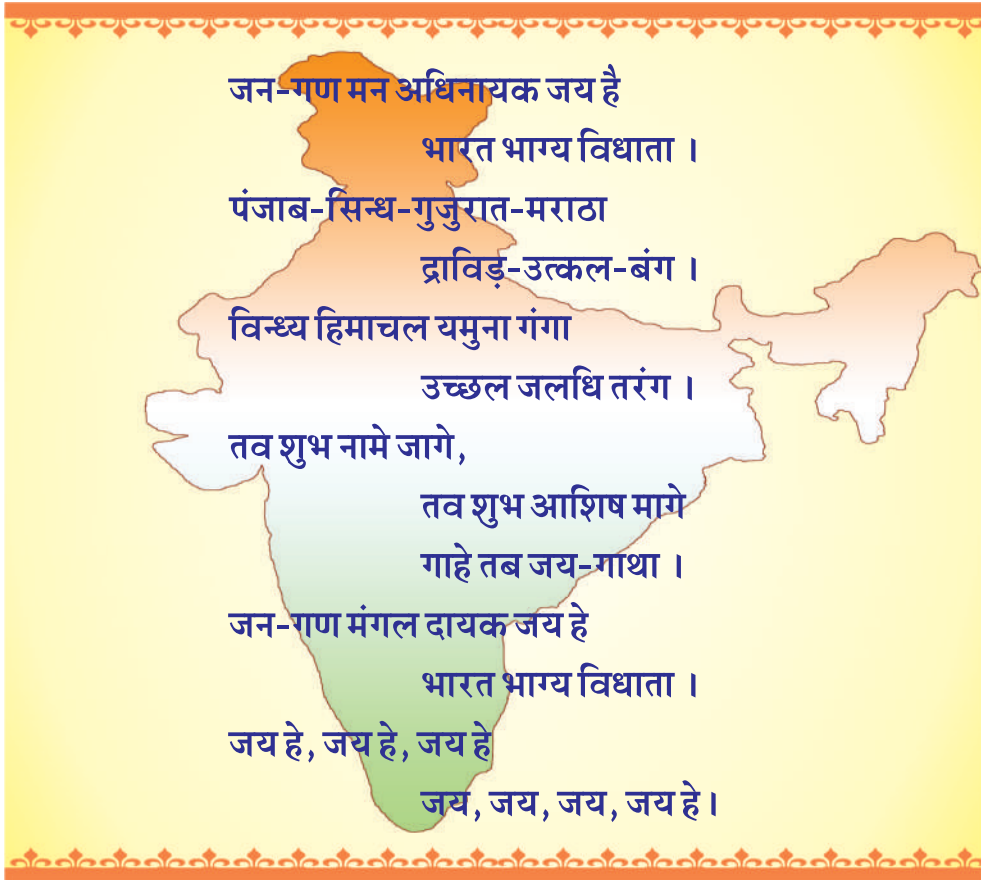 जन-गण मन अधिनायक जय है
भारत भाग्य विधाता ।
पंजाब-सिन्ध-गुजुरात-मराठा
द्राविड़-उत्कल-बंग ।
विन्ध्य हिमाचल यमुना गंगा
उच्छल जलधि तरंग ।
तव शुभ नामे जागे,
तव शुभ आशिष मागे
गाहे तब जय-गाथा ।
जन-गण मंगल दायक जय हे
भारत भाग्य विधाता ।
जय हे, जय हे, जय हे
जय, जय, जय, जय हे।